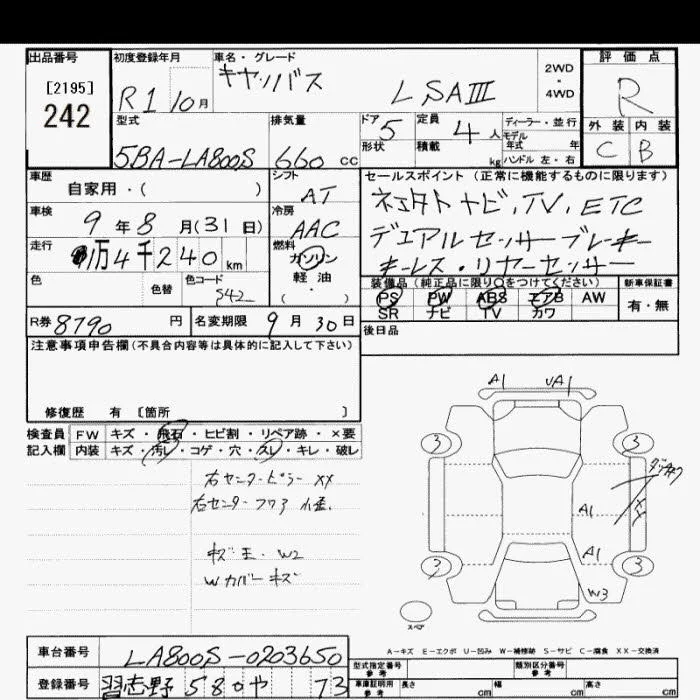 出品番号 初度登録年月 車名・グレード 評価点
[2195] R1 10月 キャンバス LSAⅢ 2WD・4WD R
242
型式 排気量 ドア 定員 ディーラー・並行 外装 内装
5BA-LA800S 660cc 5 4人 モデル年式 年 C B
形状 積載 kg ハンドル 左・右
車歴 シフト セールスポイント (正常に機能するものに限ります)
自家用・( ) AT
車検 冷房
9年8月(31日) AAC ナビ, TV, ETC
走行 燃料 デュアルセンサーブレーキ
1万4千240km ガソリン キーレス・リヤーセンサー
色 色替 色コード 軽油
S42 ・( )
装備品 (純正品に限り○をつけてください) 新車保証書
PS PW ABS エアB AW 有・無
SR ナビ TV カワ
R券 8790円 名変期限 9月30日 後日品
注意事項申告欄 (不具合内容等は具体的に記入して下さい)
修復歴 有 [箇所 ]
検査員 FW キズ・飛石・ヒビ割・リペア跡・×要
記入欄 内装 キズ・汚レ・コゲ・穴・スレ・キレ・破レ
右センターピラー XX
右センターフロア 小歪
W2
Wカバーキズ
A1 UA1
3 3
XX
A1
A1
3 3
W3
スペア
A-キズ E-エクボ U-凹み W-補修跡 S-サビ C-腐食 XX-交換済
車台番号 LA800S-0203650
型式指定番号 参考 類別区分番号 参考
登録番号 習志野 580 や 73
車庫証明用 参考 長さ cm 幅 cm 高さ cm